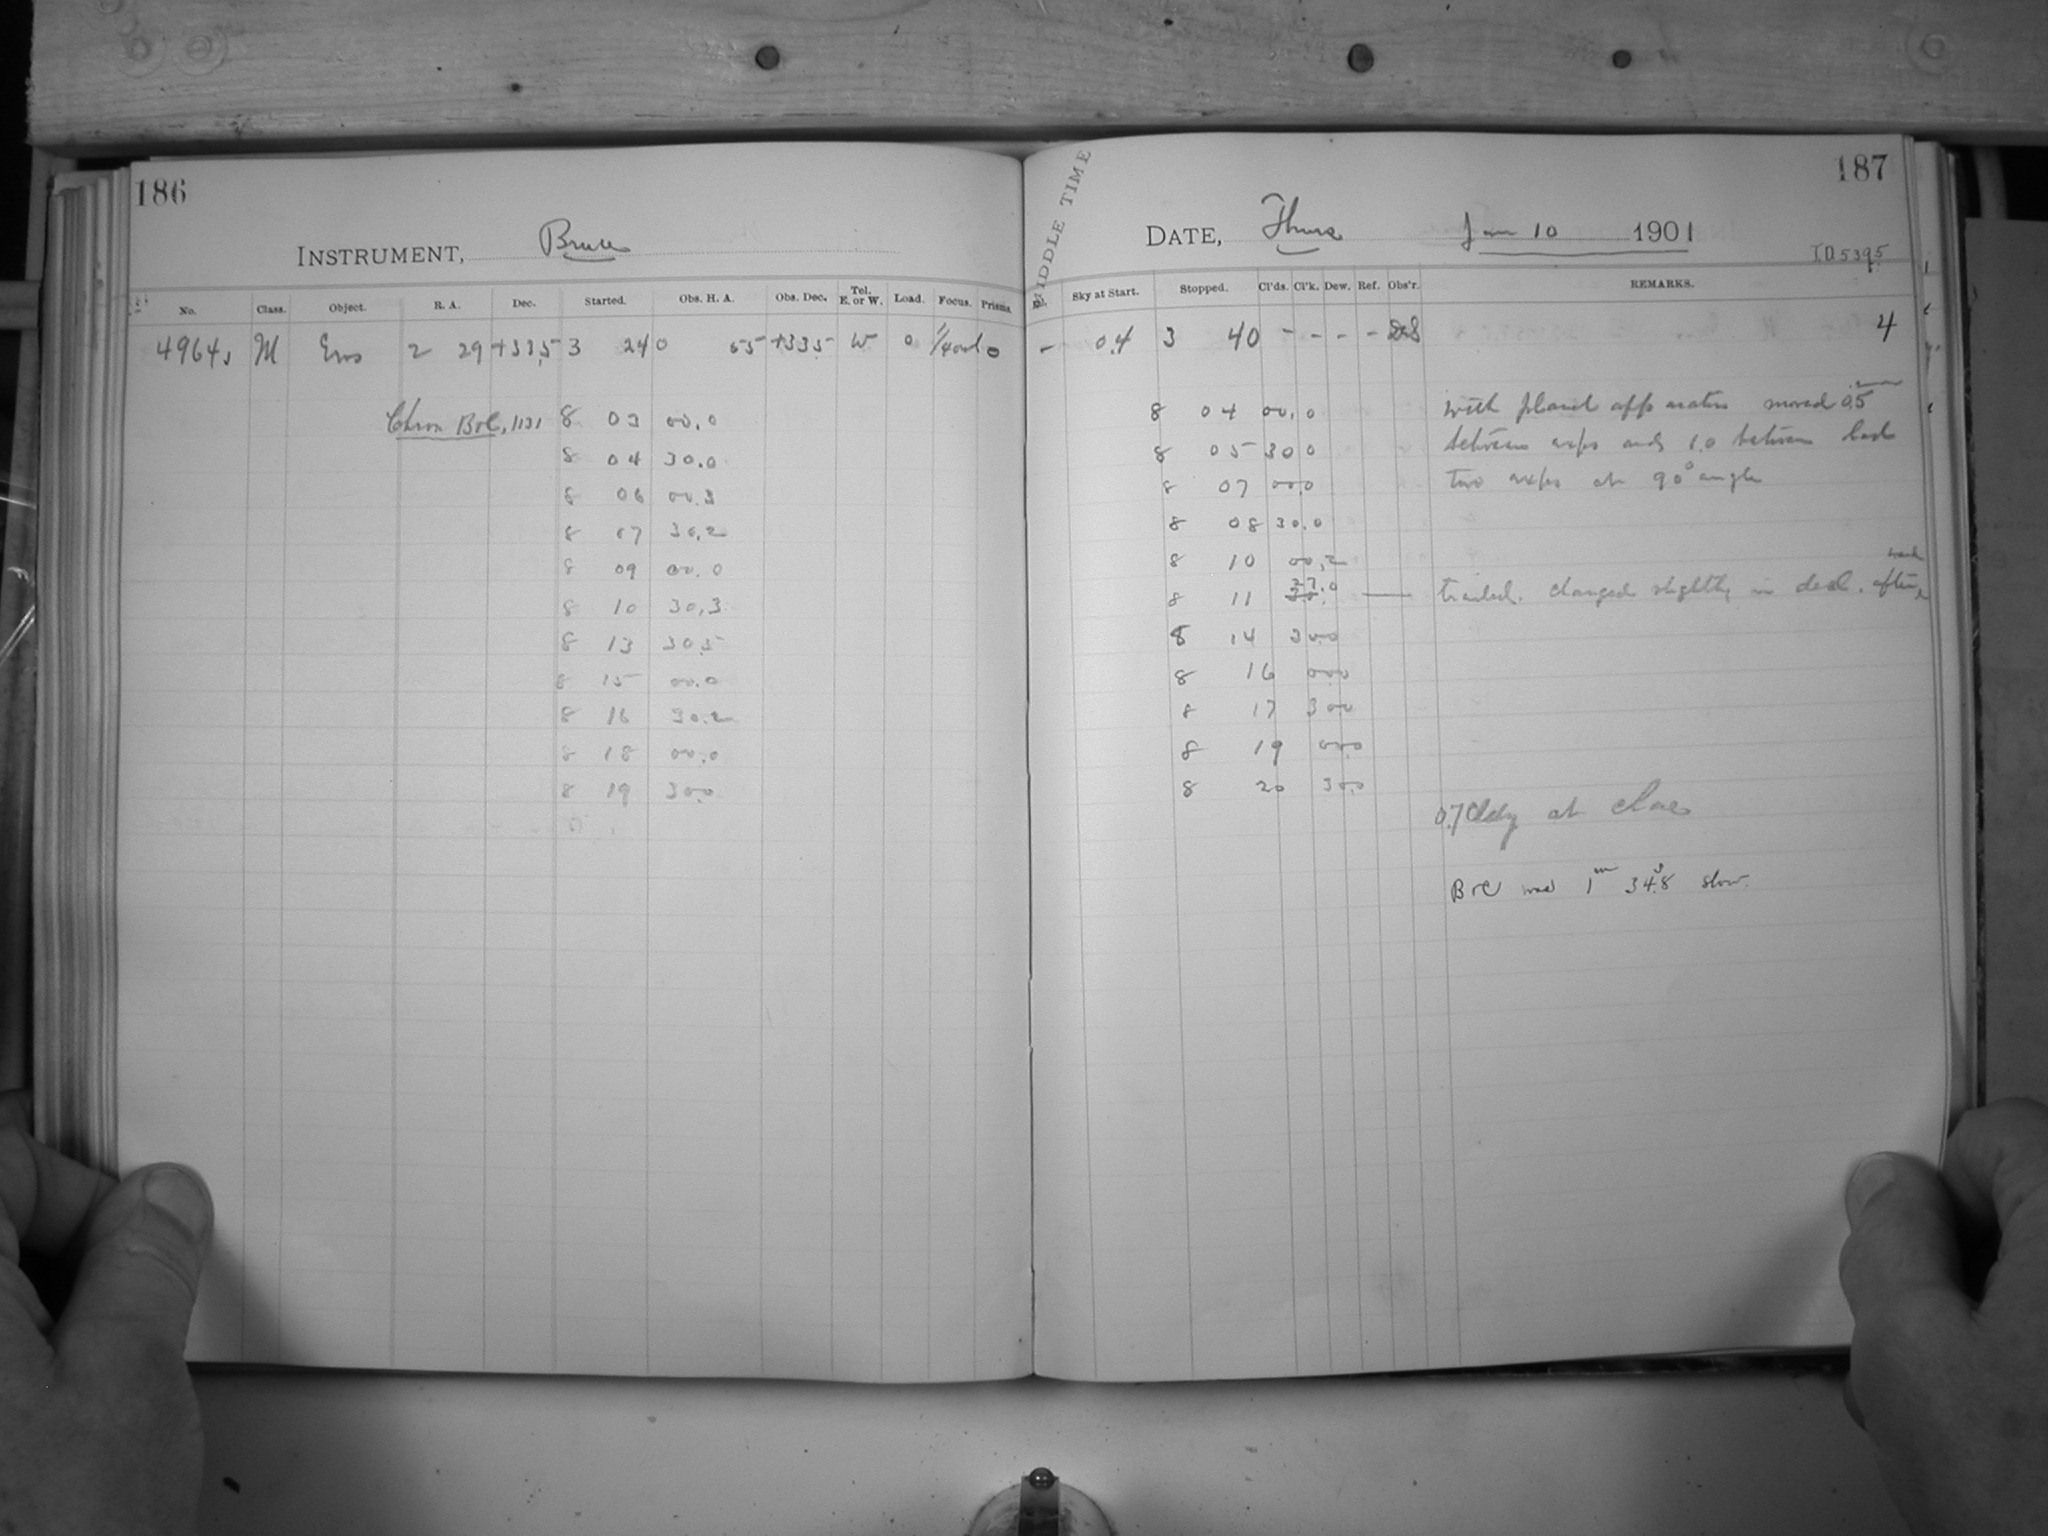 186
INSTRUMENT, Bruce
No. Class. Object. R. A. Dec. Started. Obs. H. A. Obs. Dec. Tel. E. or W. Load. Focus. Prisms
4964 M Eros 2 29 +33.5 3 24 0 55 +33.5 W 0 0
Chron B&C, 1131 8 03 00.0
8 04 30.0
8 06 00.3
8 07 30.2
8 09 00.0
8 10 30.3
8 13 30.5
8 15 00.0
8 16 30.2
8 18 00.0
8 19 30.0
MIDDLE TIME
187
DATE, Thurs Jan 10 1901
J.D. 5395
Sky at Start. Stopped. Cl'ds. Cl'k. Dew. Ref. Obs'r. REMARKS.
- 0.4 3 40 - - - - 4
8 04 00.0 with planet apparatus moved 0.5
8 05 30.0 between exps and 1.0 between last
8 07 00.0 two exps at 90° angle
8 08 30.0
8 10 00.2
8 11 27.0 — trailed. changed slightly in decl. after
8 14 30.0
8 16 00.0
8 17 30.0
8 19 00.0
8 20 30.0
0.7 Cldy at close
B&C was 1m 34.8s slow.